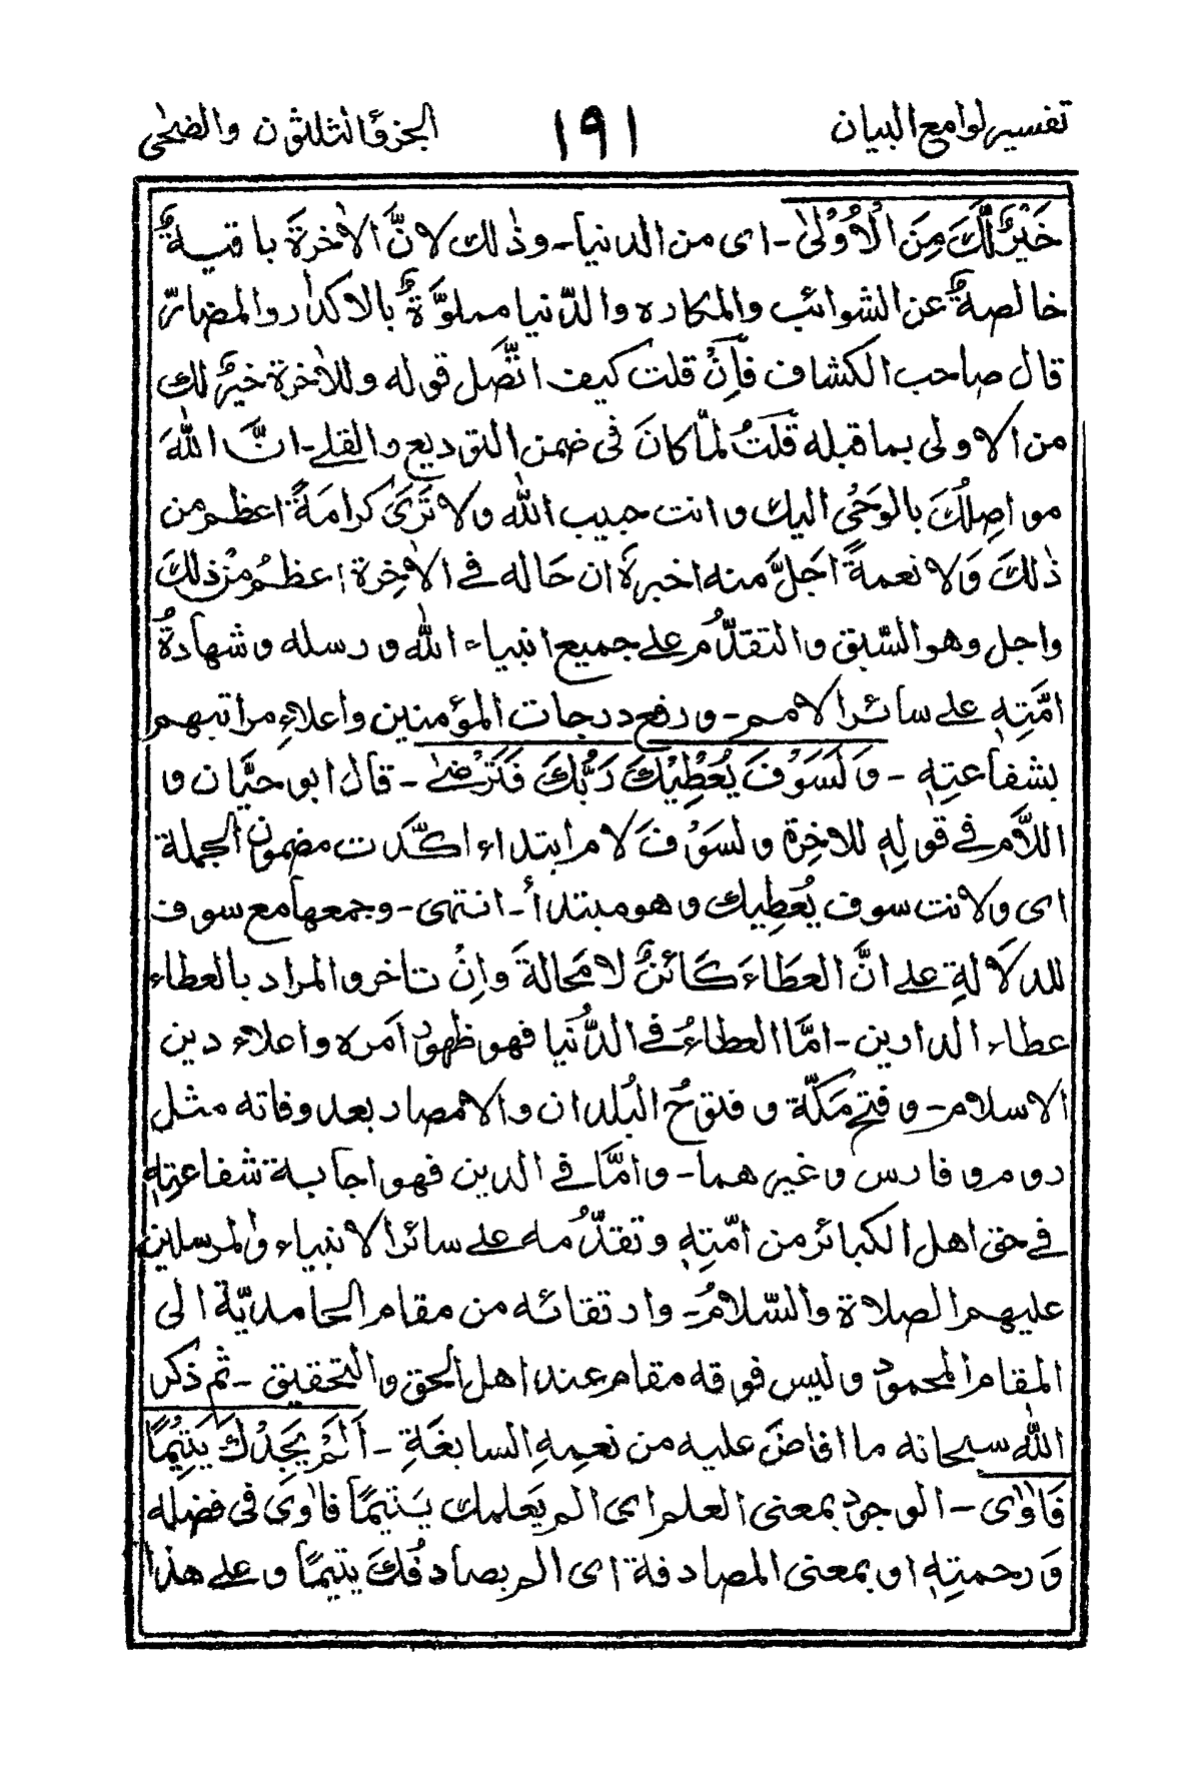 تفسير لوامع البيان ١٩١ الجزء الثلثون والضحى
خَيْرٌ لَّكَ مِنَ الْاُوْلٰى - اى من الدنيا - وذٰلك لانَّ الاٰخرةَ باقيةٌ
خالصةٌ عن الشوائب والمكاره والدّنيا مملوَّةٌ بالاكدار والمضارّ
قال صاحب الكشاف فَاِنْ قلت كيف اتّصل قوله وللاٰخرة خيرٌ لك
من الاولى بما قبله قُلتُ لمّا كانَ فى ضمن التوديع والقلے - انَّ اللّٰهَ
مواصِلُكَ بالوَحْىِ اليك وانت حبيب اللّٰه ولا تَرَىٰ كرامَةً اعظم من
ذٰلكَ وَلا نعمةً اجلَّ منه اخبرهَ ان حاله فے الاٰخِرة اعظمُ من ذلك
واجل وهو السّبق والتقدّمُ علے جميع انبياء اللّٰه ورسله وشهادةُ
امّتِهٖ علے سائر الامم - ورفع درجات المؤمنين واعلاءِ مراتبهم
بشفاعتِهٖ - وَلَسَوْفَ يُعْطِيْكَ رَبُّكَ فَتَرْضٰے - قال ابو حيَّان و
اللاَّم فے قولِهٖ للاخِرة ولسَوْفَ لام ابتداء اكَّدت مضمون الجملة
اى ولانت سوف يُعطِيك وهو مبتدأ - انتهى - وجمعها مع سوف
للدلالةِ علے انَّ العطَاءَ كَائنٌ لا مَحالةَ وَاِنْ تاخر والمراد بالعطاء
عطاء الدارين - امَّا العطاءُ فے الدُّنيا فهو ظهور امره واعلاء دين
الاسلام - وفتح مكّة وفتوحُ البُلدان والامصار بعد وفاته مثل
روم وفارس وغيرهما - وامَّا فے الدين فهو اجابة شفاعتِهٖ
فے حق اهل الكبائر من امّتِهٖ وتقدّمُه علے سائر الانبياء والمرسلين
عليهم الصلاة والسّلامُ - وارتقائه من مقام الحامديّة الى
المقام المحمود وليس فوقه مقام عند اهل الحق والتحقيق - ثم ذكر
اللّٰه سبحانه ما افاضَ عليه من نعمِهِ السابغَةِ - اَلَمْ يَجِدْكَ يَتِيْمًا
فَاٰوٰى - الوجود بمعنى العلم اى الم يَعلمك يَتيمًا فاٰوىَ فى فضله
وَرحمتِهٖ او بمعنى المصادفة اى الم يصادفُكَ يتيمًا وعلے هذا